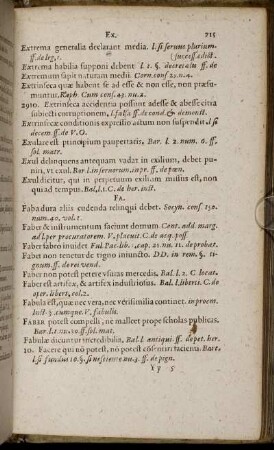 Ex. 215
Extrema generalia declarant media. l. si seruum plurium.
ff. de leg. 1. (succes. edict.
Extrema habilia supponi debent l. 1. §. decretalis ff. de
Extremum sapit naturam medij. Corn. cons. 23. n. 4.
Extrinseca quæ habent se ad esse & non esse, non præsu-
muntur. Raph. Cum cons. 43. nu. 2.
2910. Extrinseca accidentia possunt adesse & abesse citra
subiecti corruptionem, l. falsa ff. de cond. & demonst.
Extrinsecæ conditionis expressio actum non suspendit. l. si
decem. ff. de V. O.
Exulare est principium paupertatis, Bar. l. 2. num. 6. ff.
sol. matr.
Exul delinquens antequam vadat in exilium, debet pu-
niri, vt exul. Bar. l. in seruorum, in pr. ff. de pœn.
Exul dicitur, qui in perpetuum exilium missus est, non
quo ad tempus. Bal. l. 1. C. de her. inst.
Fa.
Faba dura alijs cudenda relinqui debet. Socyn. cons. 130.
num. 40. vol. 1.
Faber & instrumentum faciunt domum Cant. add. marg.
ad l. per procuratorem. V. placuit. C. de acq. poss.
Faber fabro inuidet Ful. Pac. lib. . cap. 21. nu. 11. de probat.
Faber non tenetur de tigno iniuncto. DD. in rem. §.
tignum. ff. de rei vend.
Faber non potest petere vsuras mercedis, Bal. l. 2. C. locat.
Faber est artifex, & artifex industriosus. Bal. l. liberti. C. de
oper. libert. col. 2.
Fabula est, quæ nec vera, nec verisimilia continet. in proem.
Inst. §. cumque. V. fabulis.
Faber potest compelli, ne malleet prope scholas publicas.
Bar. l. 1. nu. 10. ff. sol. mat.
Fabulæ dicuntur incredibilia, Bal. l. antiqui. ff. de pet. her.
20. Facere qui nō potest, nō potest cōsentiri facienti. Bart.
l. si fundus 16. §. si nesciente nu. 4. ff. de pign.
Yy 5